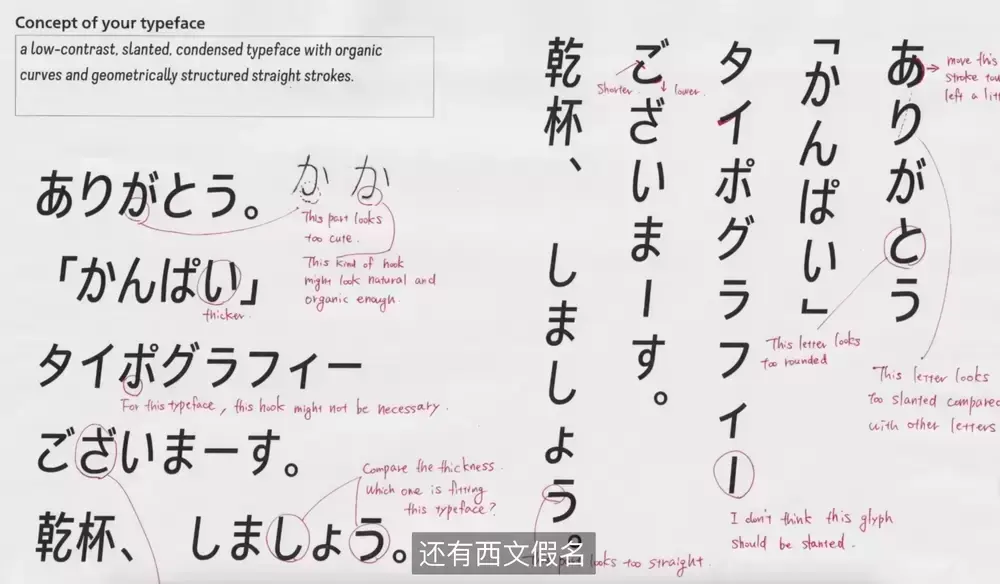 Concept of your typeface
a low-contrast, slanted, condensed typeface with organic
curves and geometrically structured straight strokes.
ありがとう。
か か
This part looks
too cute.
This kind of hook
might look natural and
organic enough.
「かんぱい」
thicker.
タイポグラフィー
For this typeface, this hook might not be necessary.
ございまーす。
Compare the thickness.
Which one is fitting
this typeface?
乾杯、 しましょう。
ありがとう
move this
stroke
left a
「かんぱい」
タイポグラフィー
ございまーす。
shorter.
lower.
乾杯、 しましょう。
This letter looks
too rounded
This letter looks
too slanted compared
with other letters
I don't think this glyph
should be slanted.
looks too straight.
还有西文假名